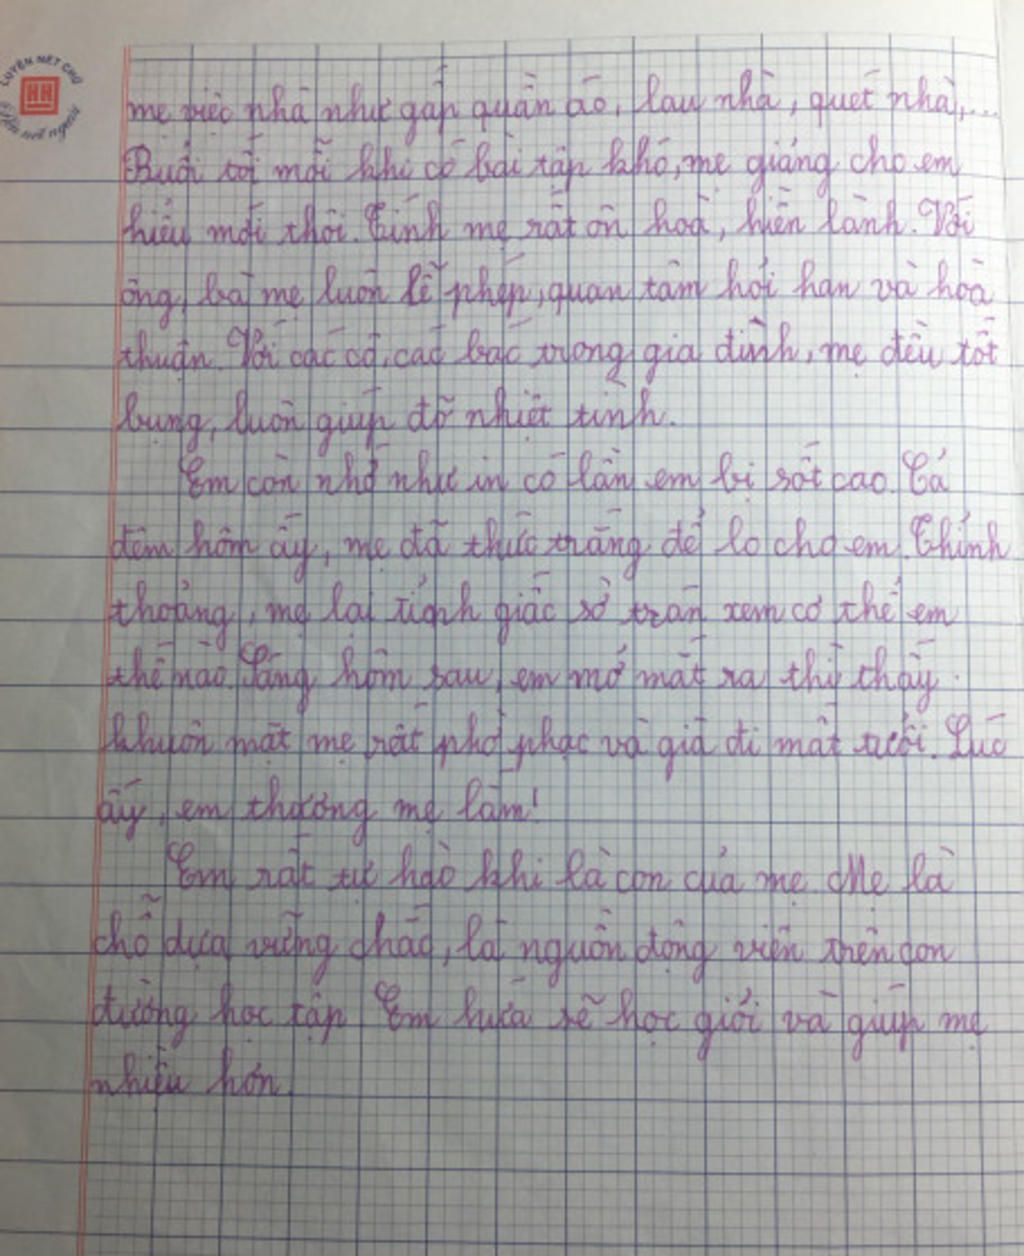 LUYỆN NÉT CHỮ
HH
mẹ việc nhà như gấp quần áo, lau nhà, quét nhà,...
Buổi tối mỗi khi có bài tập khó, mẹ giảng cho em
hiểu mới thôi. Tính mẹ rất ôn hoà, hiền lành. Với
ông, bà mẹ luôn lễ phép, quan tâm hỏi han và hoà
thuận. Với các cô, các bác trong gia đình, mẹ đều tốt
bụng, luôn giúp đỡ nhiệt tình.
Em còn nhớ như in có lần em bị sốt cao. Cả
đêm hôm ấy, mẹ đã thức trắng để lo cho em. Thỉnh
thoảng, mẹ lại tỉnh giấc sờ trán xem cơ thể em
thế nào. Sáng hôm sau, em mở mắt ra thì thấy
khuôn mặt mẹ rất phờ phạc và già đi mất tuổi. Lúc
ấy, em thương mẹ lắm!
Em rất tự hào khi là con của mẹ. Mẹ là
chỗ dựa vững chắc, là nguồn động viên trên con
đường học tập. Em hứa sẽ học giỏi và giúp mẹ
nhiều hơn.